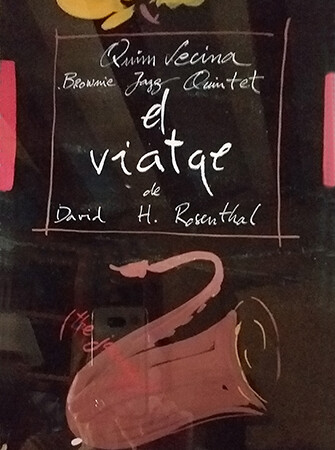 Quim Lecina
Brownie Jazz Quintet
el
viatge
de
David H. Rosenthal